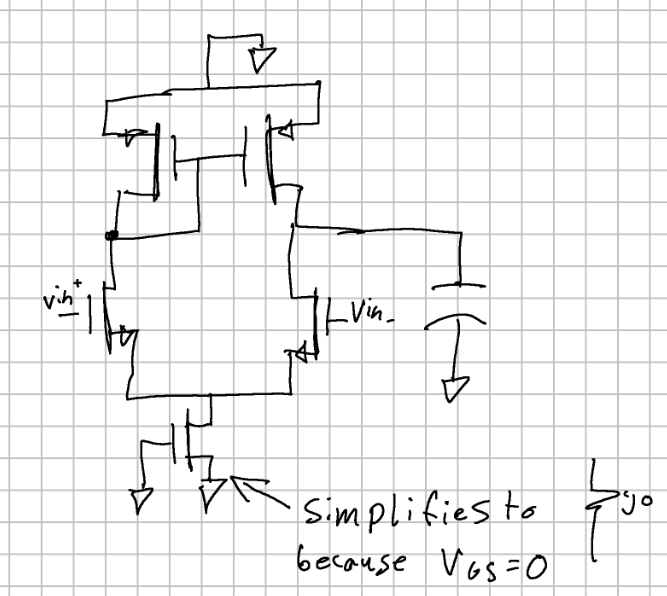 vin+
Vin-
simplifies to
go
because VGS=0